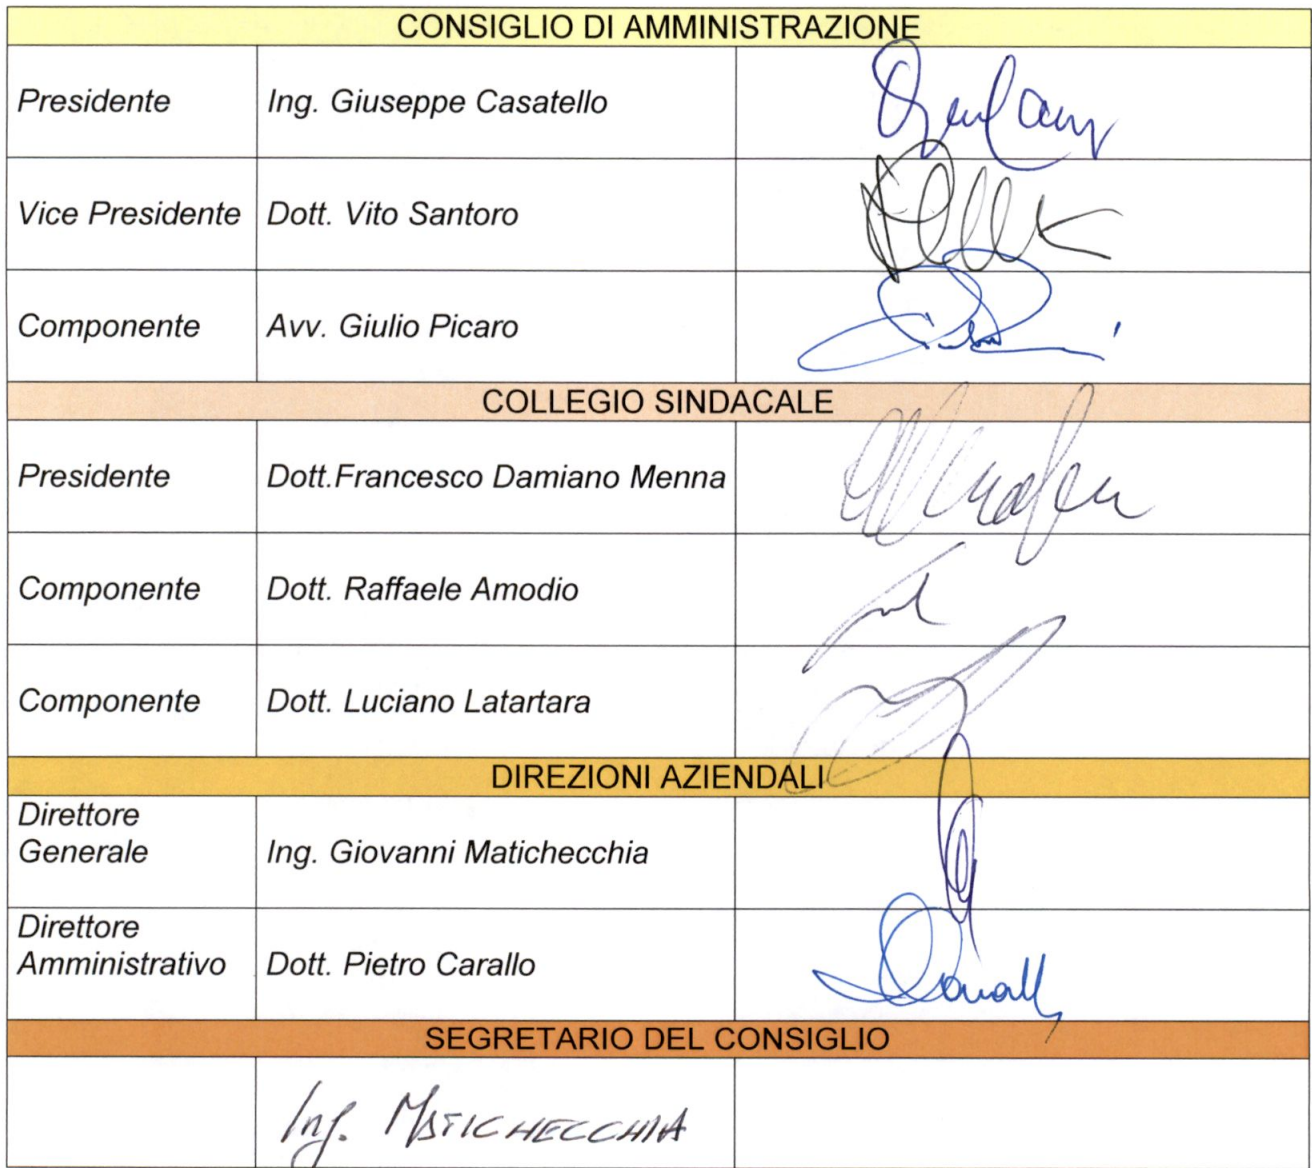 CONSIGLIO DI AMMINISTRAZIONE
Presidente Ing. Giuseppe Casatello
Vice Presidente Dott. Vito Santoro
Componente Avv. Giulio Picaro
COLLEGIO SINDACALE
Presidente Dott.Francesco Damiano Menna
Componente Dott. Raffaele Amodio
Componente Dott. Luciano Latartara
DIREZIONI AZIENDALI
Direttore
Generale Ing. Giovanni Matichecchia
Direttore
Amministrativo Dott. Pietro Carallo
SEGRETARIO DEL CONSIGLIO
Ing. MATICHECCHIA